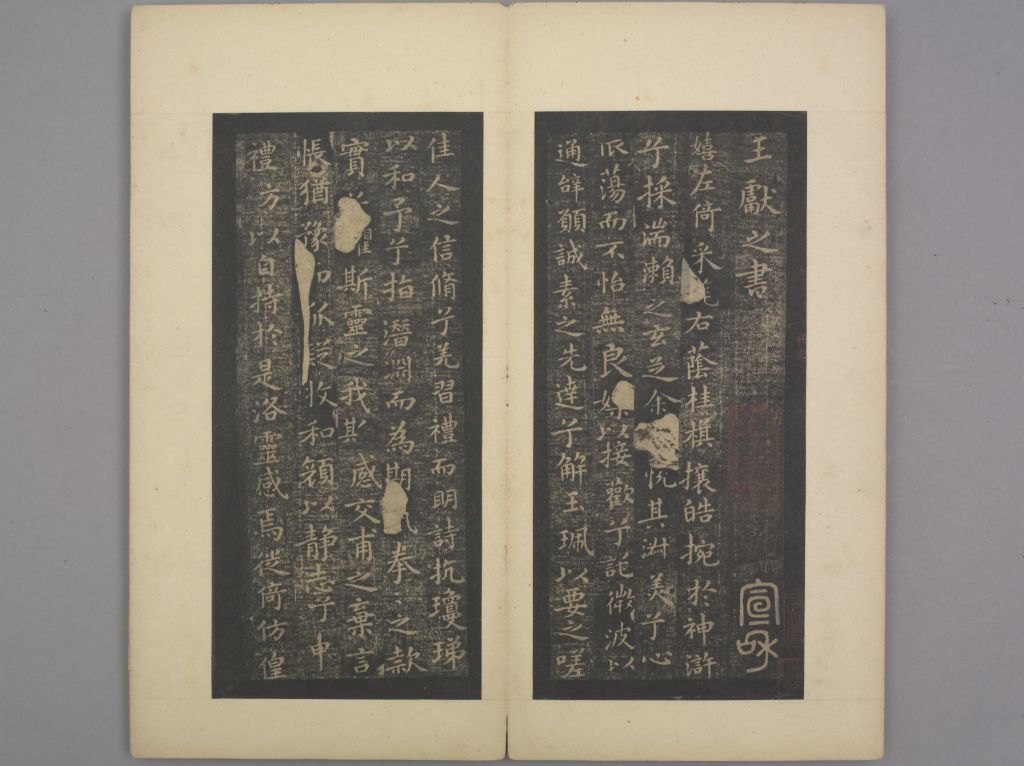 王獻之書
宣和
嬉左倚采旄右蔭桂旗攘皓捥於神滸
兮採湍瀨之玄芝余悅其淑美兮心
振蕩而不怡無良媒以接歡兮託微波以
通辭願誠素之先達兮解玉珮以要之嗟
佳人之信脩兮羌習禮而明詩抗瓊珶
以和予兮指潛淵而為期執拳〻之款
實兮懼斯靈之我欺感交甫之棄言
悵猶豫而狐疑收和顏以靜志兮申
禮方以自持於是洛靈感焉徙倚仿偟